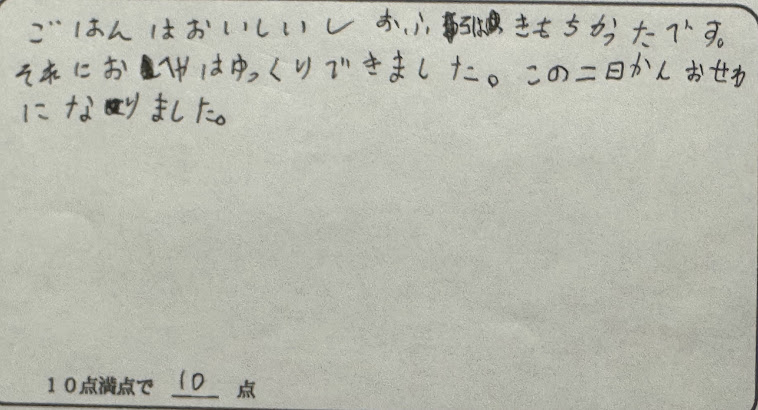 ごはんはおいしいしおふろはきもちかったです。
それにおへやはゆっくりできました。この二日かんおせわ
になりました。
10点満点で 10 点